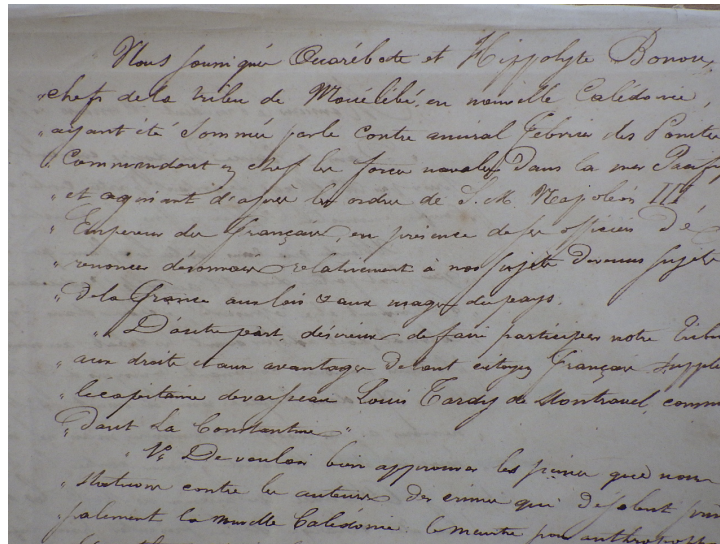 Nous soussignés Ouarébate et Hippolyte Bonou,
"chefs de la tribu de Mouélébé, en nouvelle Calédonie,
"ayant été sommés par le Contre amiral Febvrier des Pointes
"Commandant en chef les forces navales dans la mer Pacif
"et agissant d'après les ordres de S. M. Napoléon III
"Empereur des Français, en présence de ses officiers De
"renoncer désormais relativement à nos sujets devenus sujets
"de la France aux lois & aux usages du pays.
" D'autre part, désireux de faire participer notre tribu
"aux droits et aux avantages de tout citoyen Français, supplie
"le capitaine de vaisseau Louis Tardy de Montravel, comm
"dant La Constantine"
" 1° De vouloir bien approuver les peines que nous
"statuons contre les auteurs des crimes qui désolent prin
"palement la nouvelle Calédonie: le meurtre